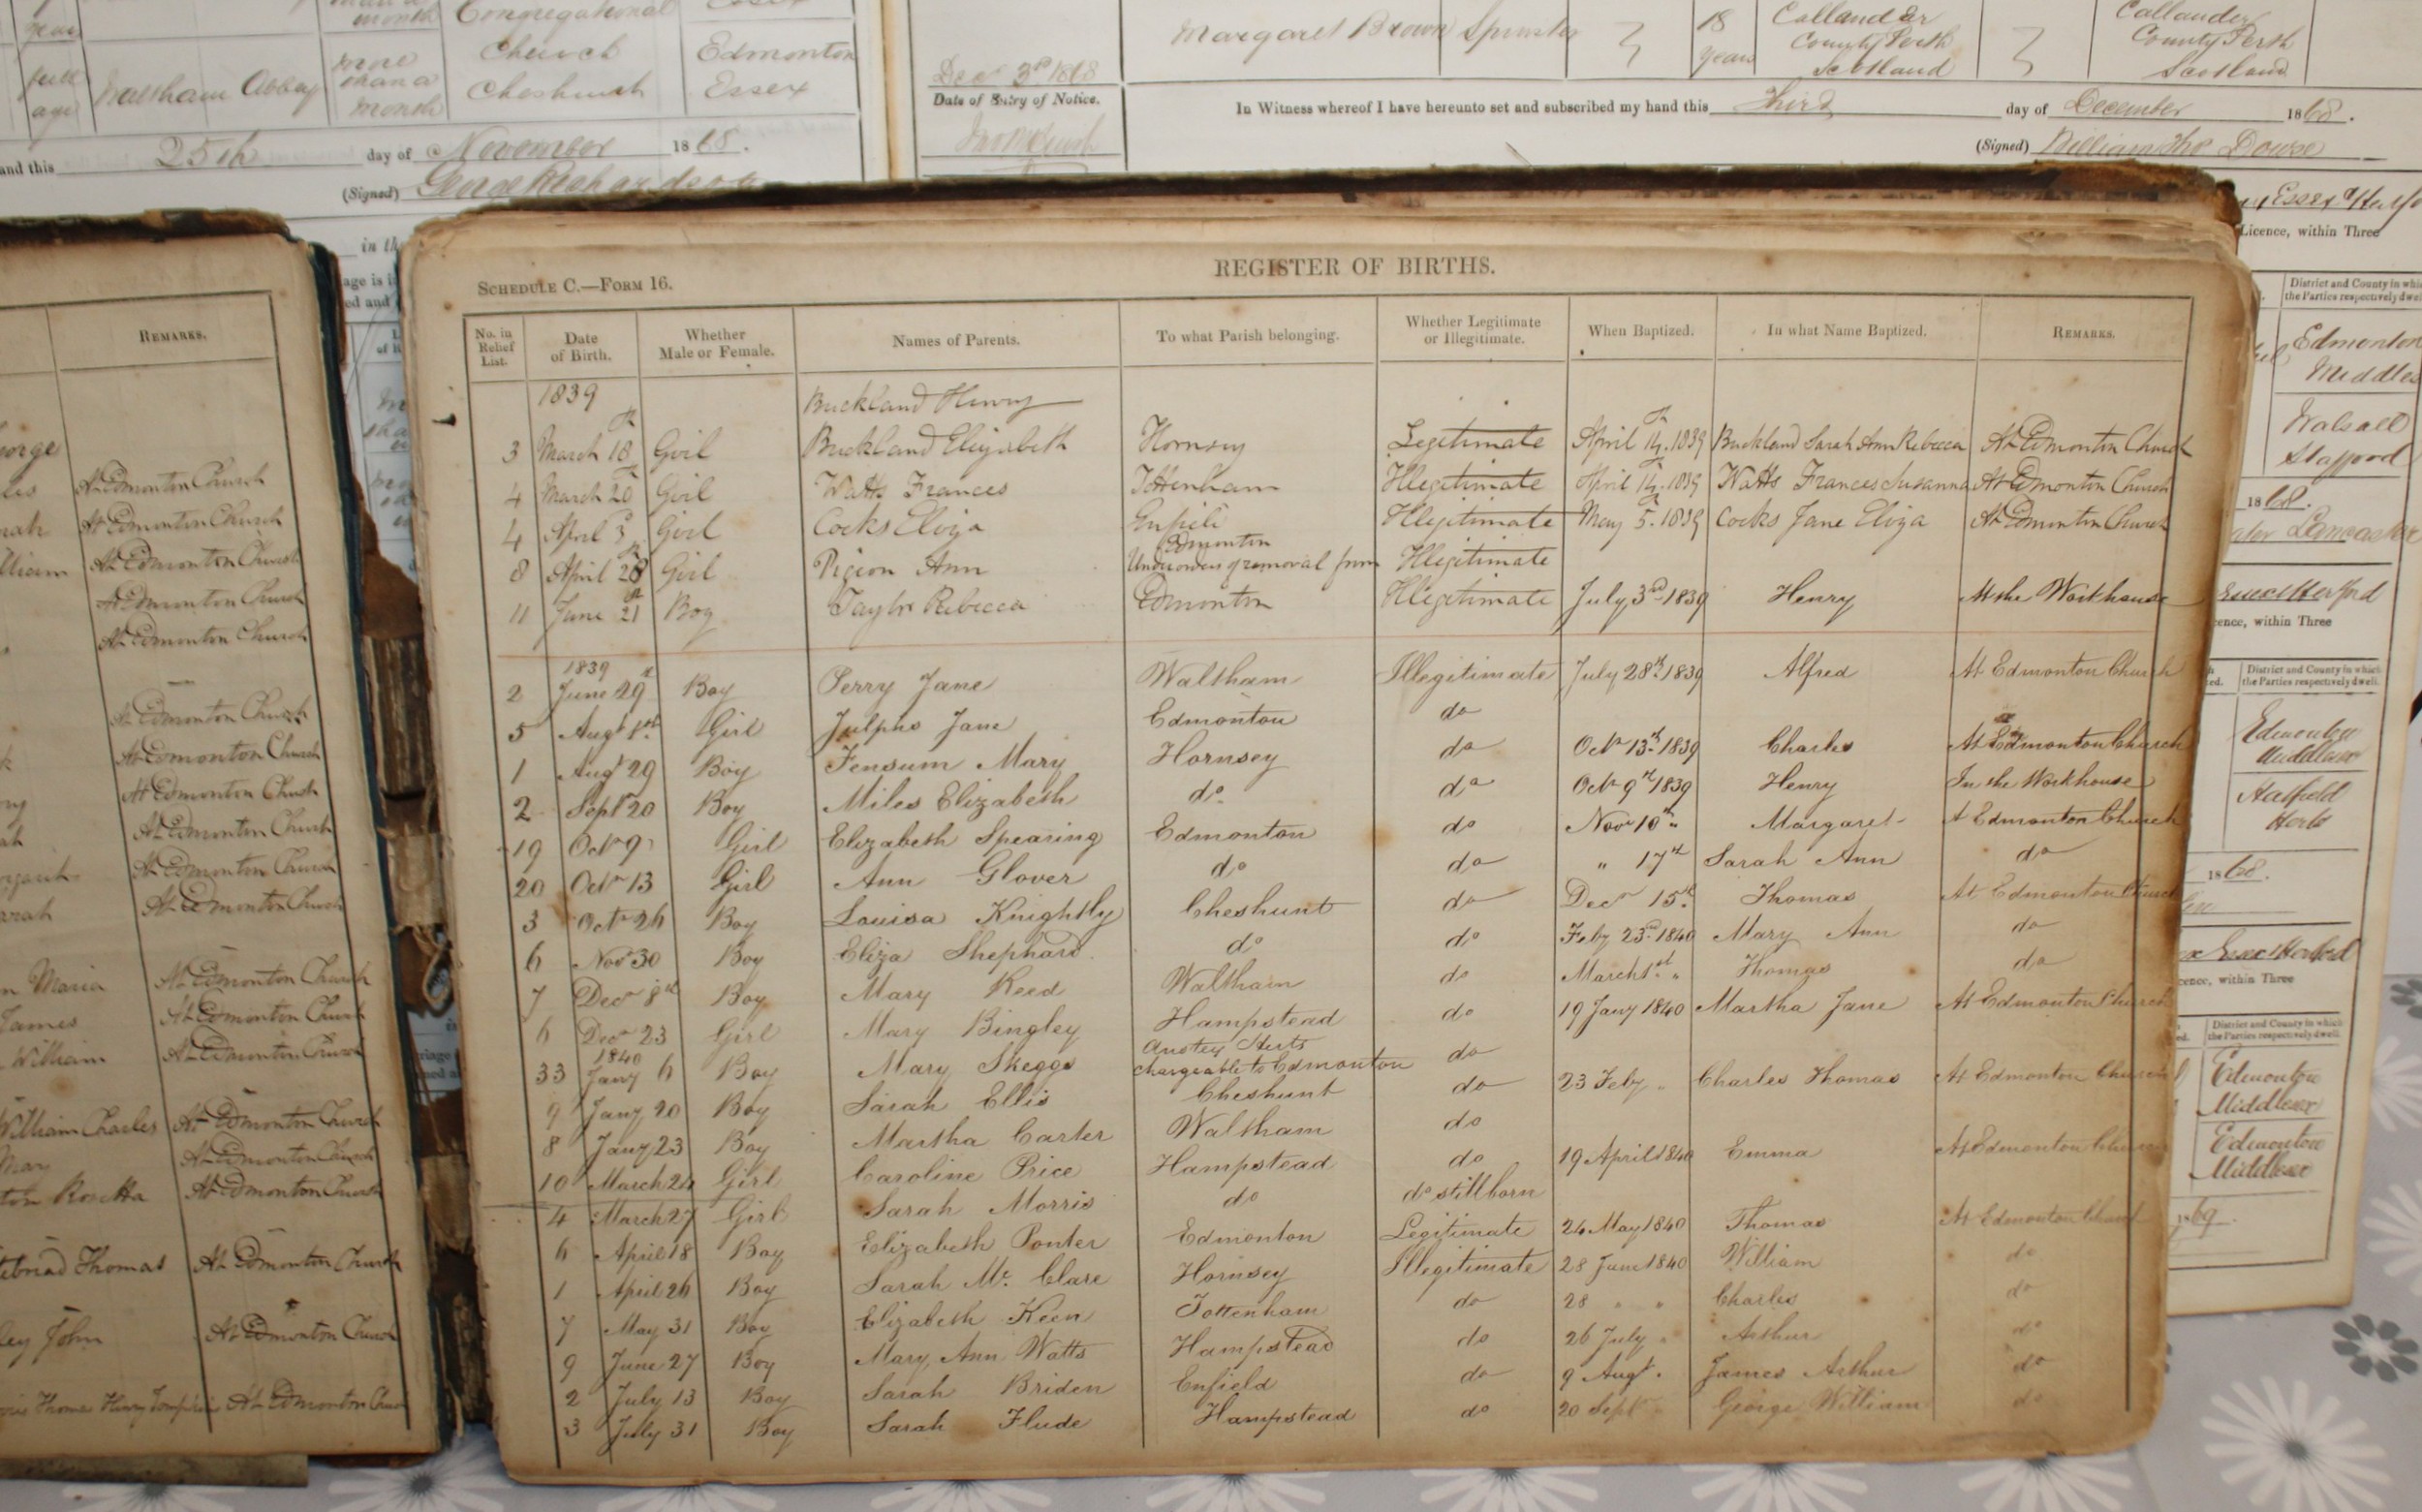 year
month
Congregational
Essex
full
age
Waltham Abbey
more
than a
month
Church
Cheshunt
Edmonton
Essex
and this 25th day of November 1868.
(Signed) George Richardson
Dec 3rd 1868
Date of Entry of Notice.
Margaret Brown Spinster 18 years
Callander
County Perth
Scotland
Callander
County Perth
Scotland
In Witness whereof I have hereunto set and subscribed my hand this Third day of December 1868.
(Signed) William Tho Dowse
Licence, within Three
District and County in which
the Parties respectively dwell
Edmonton
Walsall
Stafford
1868.
Licence, within Three
District and County in which
the Parties respectively dwell.
Edmonton
Middlesex
Hatfield
Herts
1868.
within Three
District and County in which
the Parties respectively dwell.
Edmonton
Middlesex
Edmonton
Middlesex
REMARKS.
At Edmonton Church
At Edmonton Church
At Edmonton Church
At Edmonton Church
At Edmonton Church
At Edmonton Church
At Edmonton Church
At Edmonton Church
At Edmonton Church
At Edmonton Church
At Edmonton Church
Maria At Edmonton Church
James At Edmonton Church
William At Edmonton Church
William Charles At Edmonton Church
At Edmonton Church
Rosetta At Edmonton Church
Thomas At Edmonton Church
John At Edmonton Church
At Edmonton Church
SCHEDULE C.—FORM 16.
REGISTER OF BIRTHS.
No. in Relief List. Date of Birth. Whether Male or Female. Names of Parents. To what Parish belonging. Whether Legitimate or Illegitimate. When Baptized. In what Name Baptized. REMARKS.
1839 Buckland Henry
3 March 18th Girl Buckland Elizabeth Hornsey Legitimate April 14th 1839 Buckland Sarah Ann Rebecca At Edmonton Church
4 March 20th Girl Watts Frances Tottenham Illegitimate April 14th 1839 Watts Frances Susanna At Edmonton Church
4 April 3rd Girl Cocks Eliza Enfield Illegitimate May 5th 1839 Cocks Jane Eliza At Edmonton Church
Edmonton
8 April 28th Girl Pigeon Ann Under orders of removal from Illegitimate
11 June 21st Boy Taylor Rebecca Edmonton Illegitimate July 3rd 1839 Henry At the Workhouse
1839
2 June 29th Boy Perry Jane Waltham Illegitimate July 28th 1839 Alfred At Edmonton Church
5 Augt 1st Girl Julphs Jane Edmonton do
1 Augt 29 Boy Fensum Mary Hornsey do Octr 13th 1839 Charles At Edmonton Church
2 Septr 20 Boy Miles Elizabeth do do Octr 9th 1839 Henry In the Workhouse
19 Octr 9 Girl Elizabeth Spearing Edmonton do Novr 10th " Margaret At Edmonton Church
20 Octr 13 Girl Ann Glover do do " 17th Sarah Ann do
3 Octr 26 Boy Louisa Knightly Cheshunt do Decr 15th Thomas At Edmonton Church
6 Novr 30 Boy Eliza Shephard. do do Feby 23rd 1840 Mary Ann do
7 Decr 8th Boy Mary Reed Waltham do March 1st " Thomas do
6 Decr 23 Girl Mary Bingley Hampstead do 19 Jany 1840 Martha Jane At Edmonton Church
1840 Anstey Herts
33 Jany 6 Boy Mary Skeggs chargeable to Edmonton do
9 Jany 20 Boy Sarah Ellis Cheshunt do 23 Feby " Charles Thomas At Edmonton Church
8 Jany 23 Boy Martha Carter Waltham do
10 March 24 Girl Caroline Price Hampstead do 19 April 1840 Emma At Edmonton Church
4 March 27 Girl Sarah Morris do do stillborn
6 April 18 Boy Elizabeth Ponter Edmonton Legitimate 24 May 1840 Thomas At Edmonton Church
1 April 26 Boy Sarah Mc. Clare Hornsey Illegitimate 28 June 1840 William do
7 May 31 Boy Elizabeth Keen Tottenham do 28 " " Charles do
9 June 27 Boy Mary Ann Watts Hampstead do 26 July " Arthur do
2 July 13 Boy Sarah Briden Enfield do 9 Augt. James Arthur do
3 July 31 Boy Sarah Flude Hampstead do 20 Sept George William do